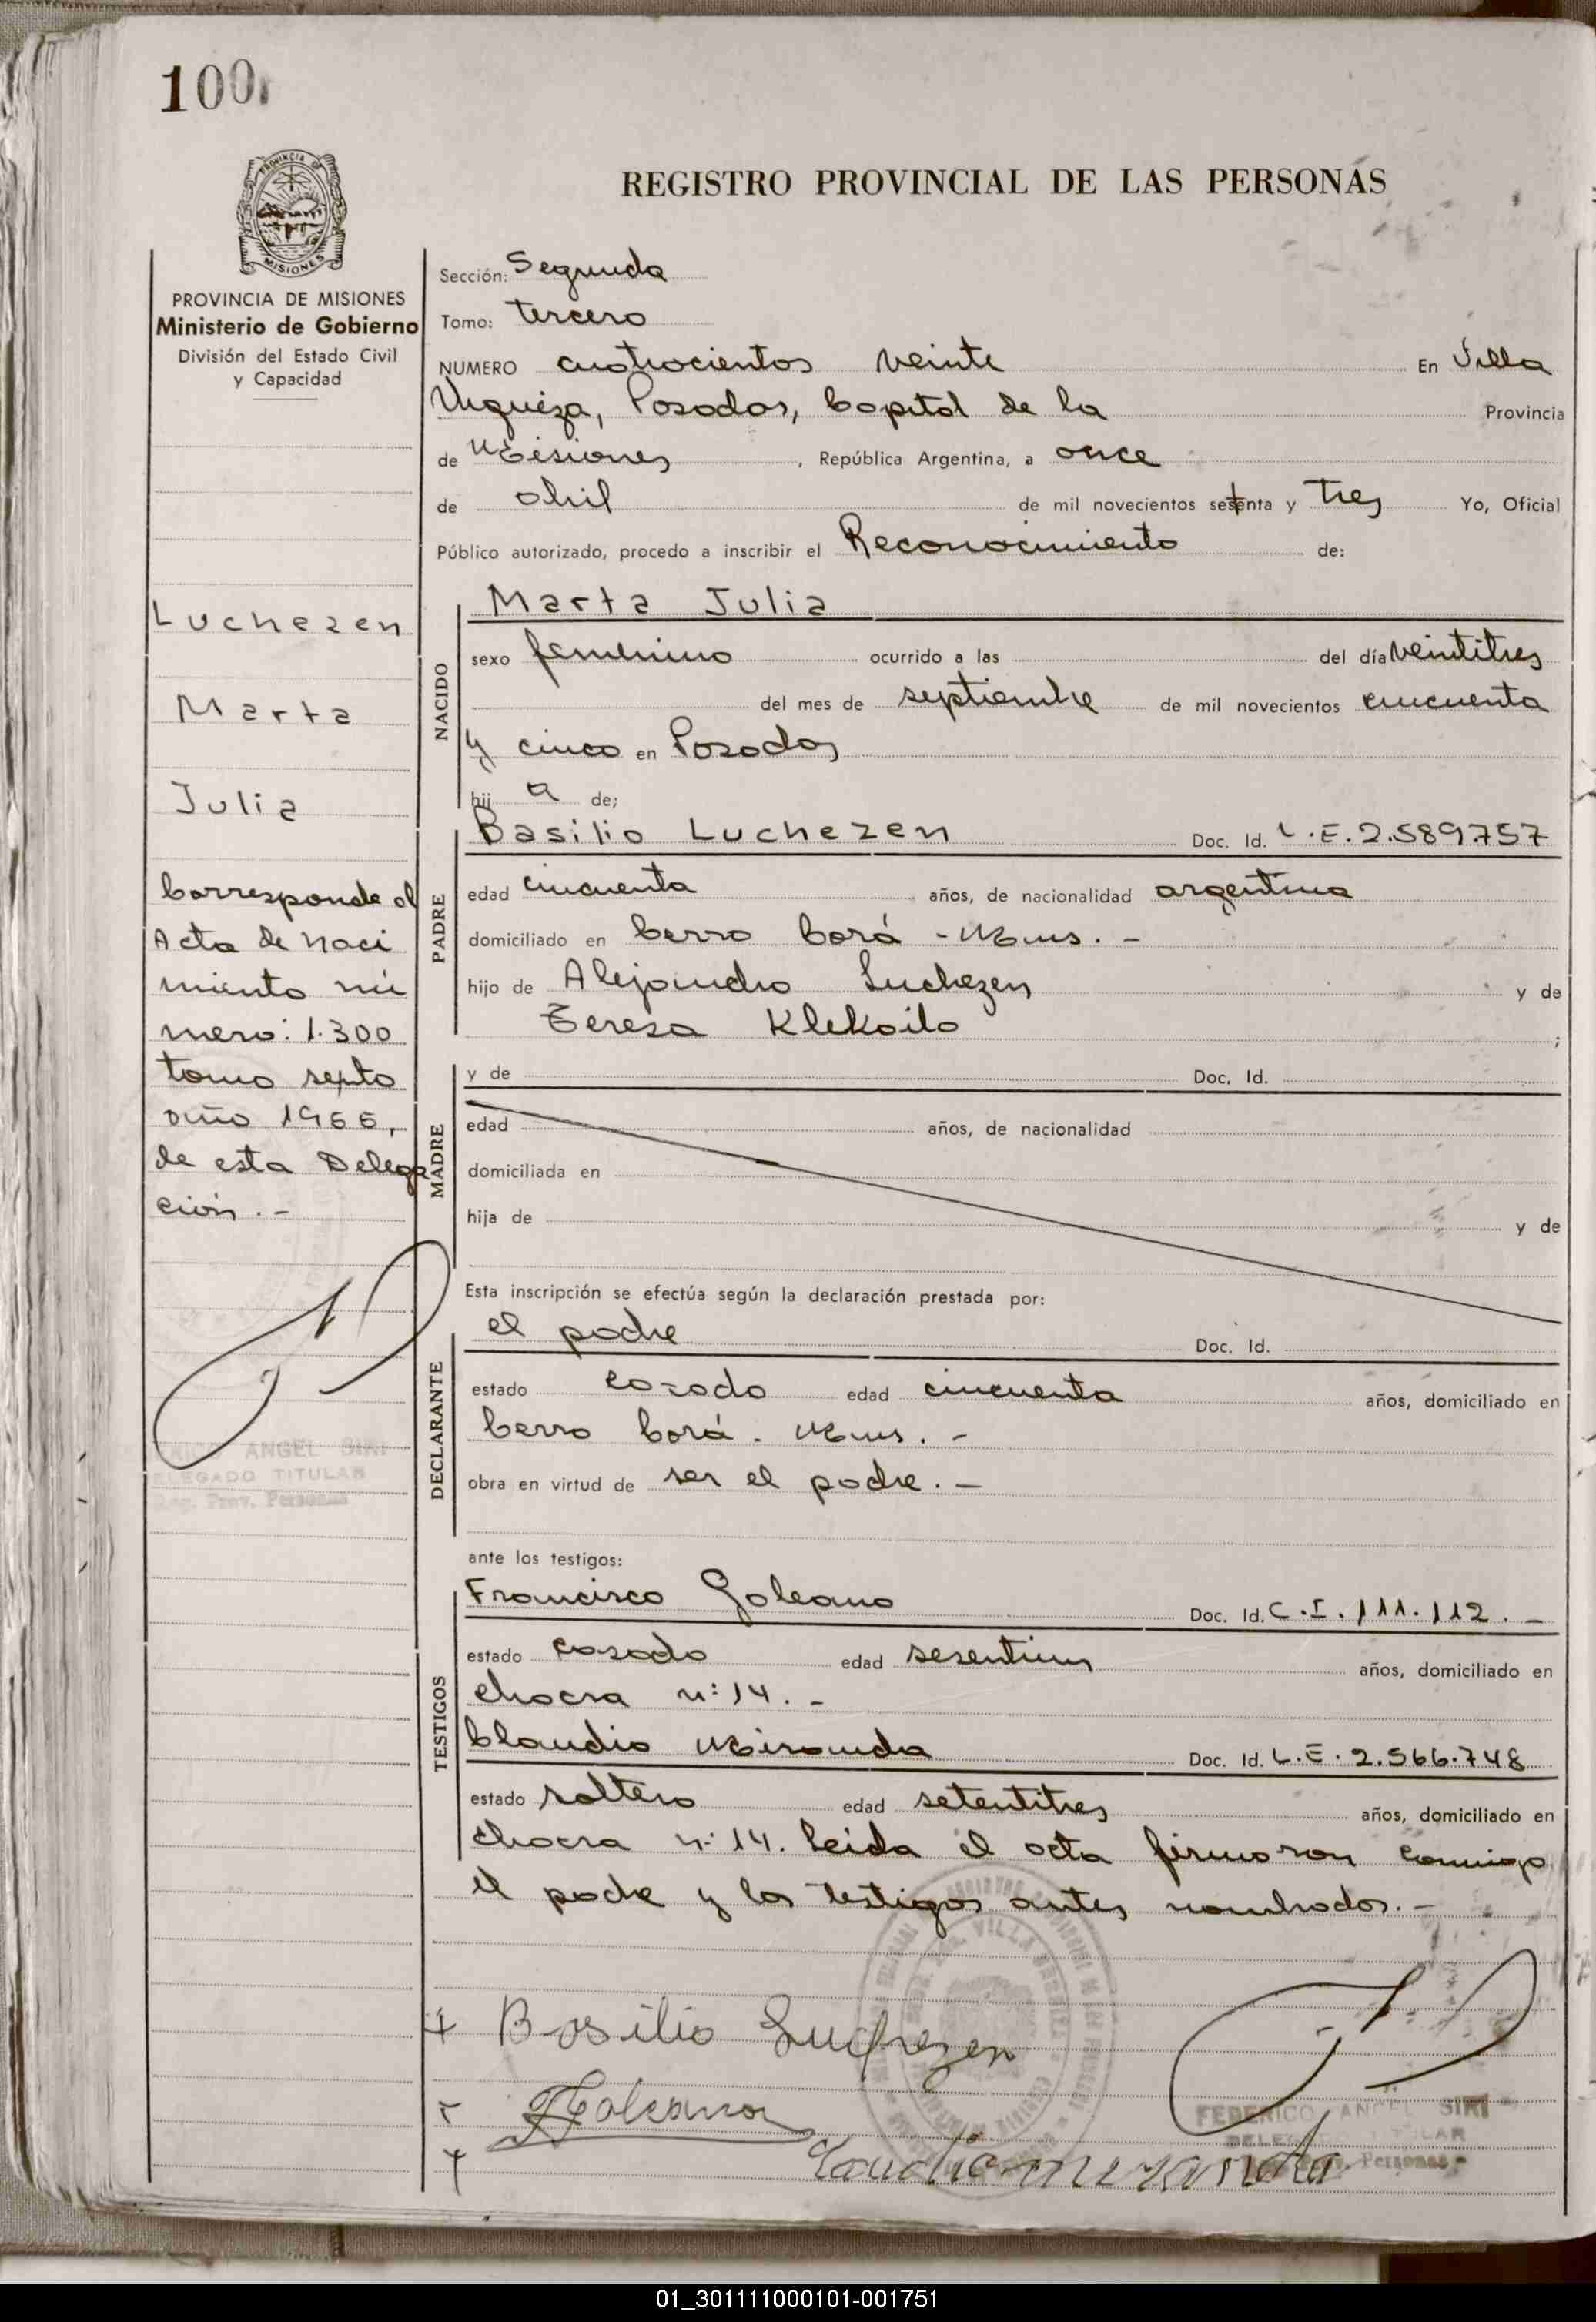 100
PROVINCIA DE
MISIONES
PROVINCIA DE MISIONES
Ministerio de Gobierno
División del Estado Civil
y Capacidad
Luchezen
Marta
Julia
Corresponde al
Acta de Naci
miento nú
mero: 1.300
tomo septo
año 1955,
de esta Delega
ción. -
ANGEL SIRI
DELEGADO TITULAR
Reg. Prov. Personas
REGISTRO PROVINCIAL DE LAS PERSONAS
Sección: Segunda
Tomo: tercero
NUMERO cuatrocientos veinte En Villa
Urquiza, Posadas, Capital de la Provincia
de Misiones, República Argentina, a once
de abril de mil novecientos setenta y tres Yo, Oficial
Público autorizado, procedo a inscribir el Reconocimiento de:
NACIDO
Marta Julia
sexo femenino ocurrido a las del día veintitres
del mes de septiembre de mil novecientos cincuenta
y cinco en Posadas
hij a de;
PADRE
Basilio Luchezen Doc. Id. L.E.2.589.757
edad cincuenta años, de nacionalidad argentina
domiciliado en Cerro Corá - Mnes. -
hijo de Alejandro Luchezen y de
Teresa Klekailo ;
MADRE
y de Doc. Id.
edad años, de nacionalidad
domiciliada en
hija de y de
Esta inscripción se efectúa según la declaración prestada por:
DECLARANTE
el padre Doc. Id.
estado casado edad cincuenta años, domiciliado en
Cerro Corá - Mnes. -
obra en virtud de ser el padre. -
ante los testigos:
TESTIGOS
Francisco Galeano Doc. Id. C.I. 111.112. -
estado casado edad sesentiun años, domiciliado en
chacra n: 14. -
Claudio Miranda Doc. Id. L.E. 2.566.748
estado soltero edad setentitres años, domiciliado en
chacra n: 14. Leida el acta firmaron conmigo
el padre y los testigos antes nombrados. -
Basilio Luchezen
FGaleano
Claudio miranda
FEDERICO ANGEL SIRI
DELEGADO TITULAR
Prov. Personas
VILLA URQUIZA
01_301111000101-001751